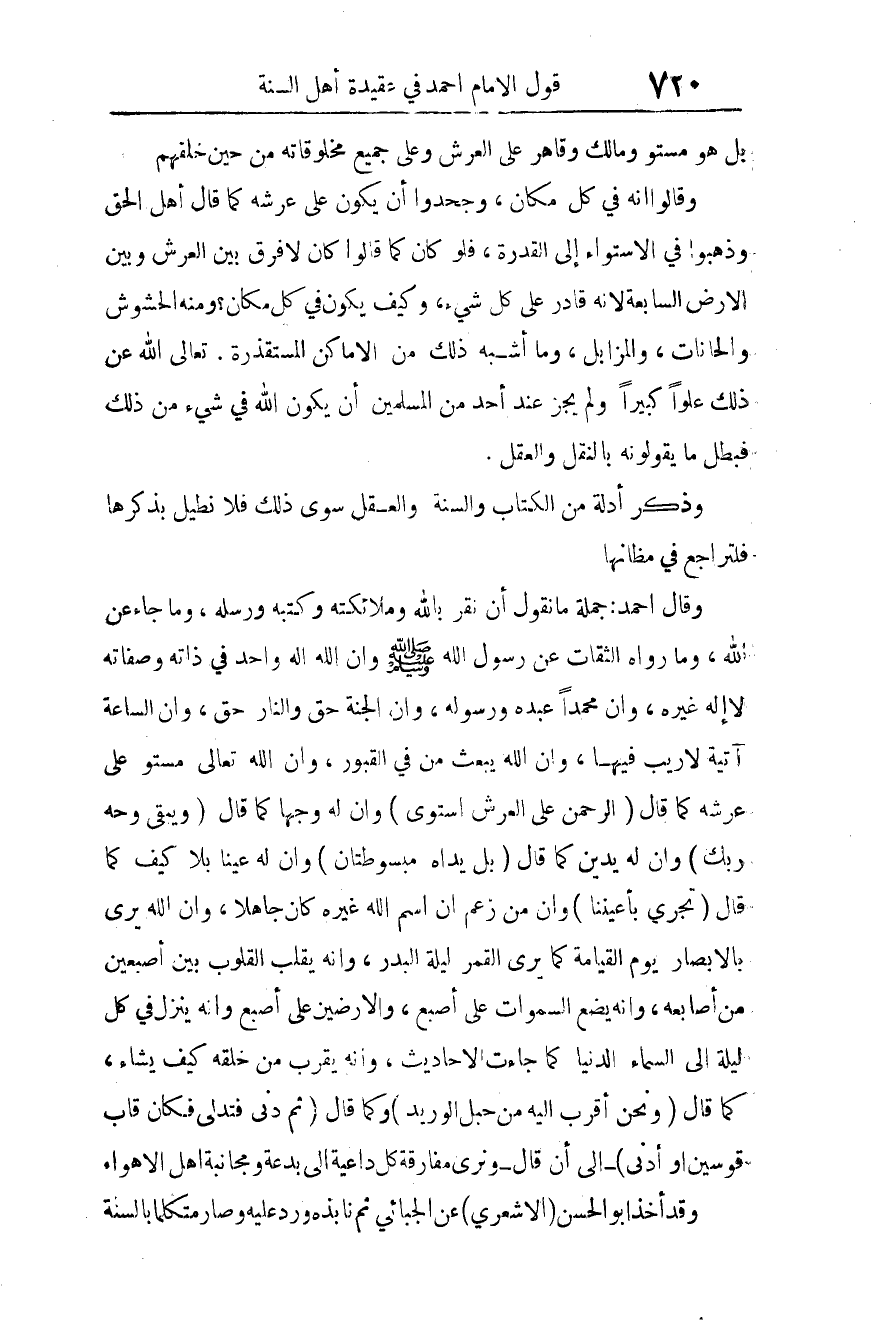 ٧٢٠ قول الامام احمد في عقيدة أهل السنة
بل هو مستو ومالك وقاهر على العرش وعلى جميع مخلوقاته من حين خلقهم
وقالوا انه في كل مكان ، وجحدوا أن يكون على عرشه كما قال أهل الحق
وذهبوا في الاستواء إلى القدرة ، فلو كان كما قالوا كان لافرق بين العرش وبين
الارض السابعة لانه قادر على كل شيء، وكيف يكون في كل مكان؟ ومنه الحشوش
والحانات ، والمزابل ، وما أشبه ذلك من الاماكن المستقذرة . تعالى الله عن
ذلك علواً كبيراً ولم يجز عند أحد من المسلمين أن يكون الله في شيء من ذلك
فبطل ما يقولونه بالنقل والعقل .
وذكر أدلة من الكتاب والسنة والعقل سوى ذلك فلا نطيل بذكرها
فلتراجع في مظانها
وقال احمد: جملة مانقول أن نقر بالله وملائكته وكتبه ورسله ، وما جاء عن
الله ، وما رواه الثقات عن رسول الله ﷺ وان الله اله واحد في ذاته وصفاته
لاإله غيره ، وان محمداً عبده ورسوله ، وان الجنة حق والنار حق ، وان الساعة
آتية لاريب فيها ، وان الله يبعث من في القبور ، وان الله تعالى مستو على
عرشه كما قال ( الرحمن على العرش استوى ) وان له وجها كما قال ( ويبقى وجه
ربك ) وان له يدين كما قال ( بل يداه مبسوطتان ) وان له عينا بلا كيف كما
قال ( تجري بأعيننا ) وان من زعم ان اسم الله غيره كان جاهلا ، وان الله يرى
بالابصار يوم القيامة كما يرى القمر ليلة البدر ، وانه يقلب القلوب بين أصبعين
من أصابعه ، وانه يضع السموات على أصبع ، والارضين على أصبع وانه ينزل في كل
ليلة الى السماء الدنيا كما جاءت الاحاديث ، وانه يقرب من خلقه كيف يشاء ،
كما قال ( ونحن أقرب اليه من حبل الوريد ) وكما قال ( ثم دنى فتدلى فكان قاب
قوسين او أدنى ) ــ الى أن قال ــ ونرى مفارقة كل داعية الى بدعة ومجانبة اهل الاهواء
وقد أخذ ابو الحسن (الاشعري) عن الجبائي ثم نابذه ورد عليه وصار متكلما بالسنة